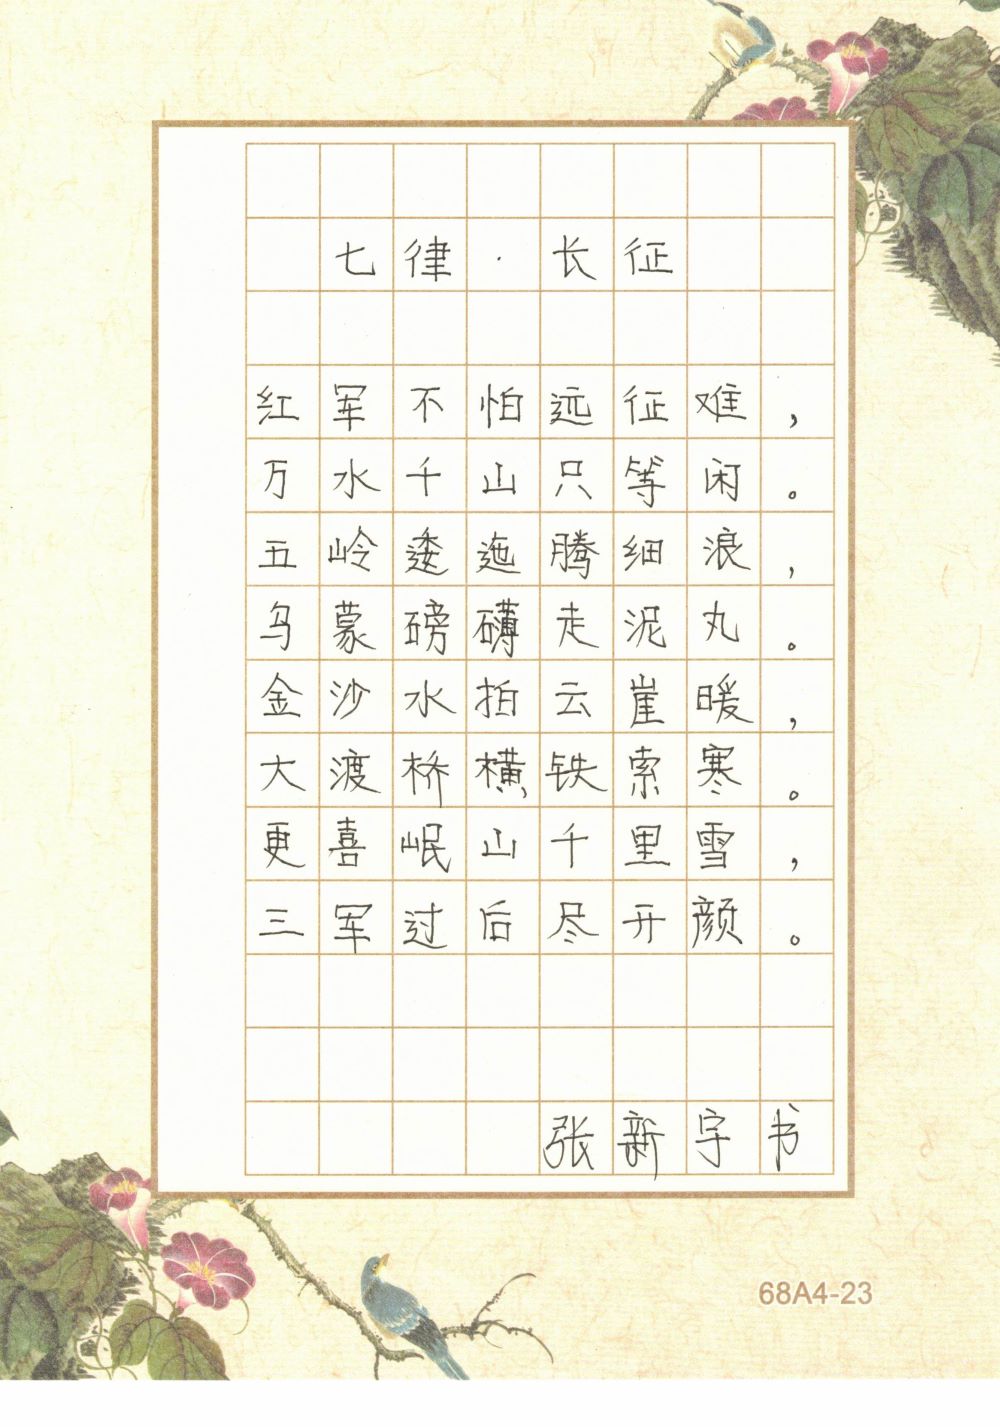 七律·长征
红军不怕远征难，
万水千山只等闲。
五岭逶迤腾细浪，
乌蒙磅礴走泥丸。
金沙水拍云崖暖，
大渡桥横铁索寒。
更喜岷山千里雪，
三军过后尽开颜。
张新宇书
68A4-23